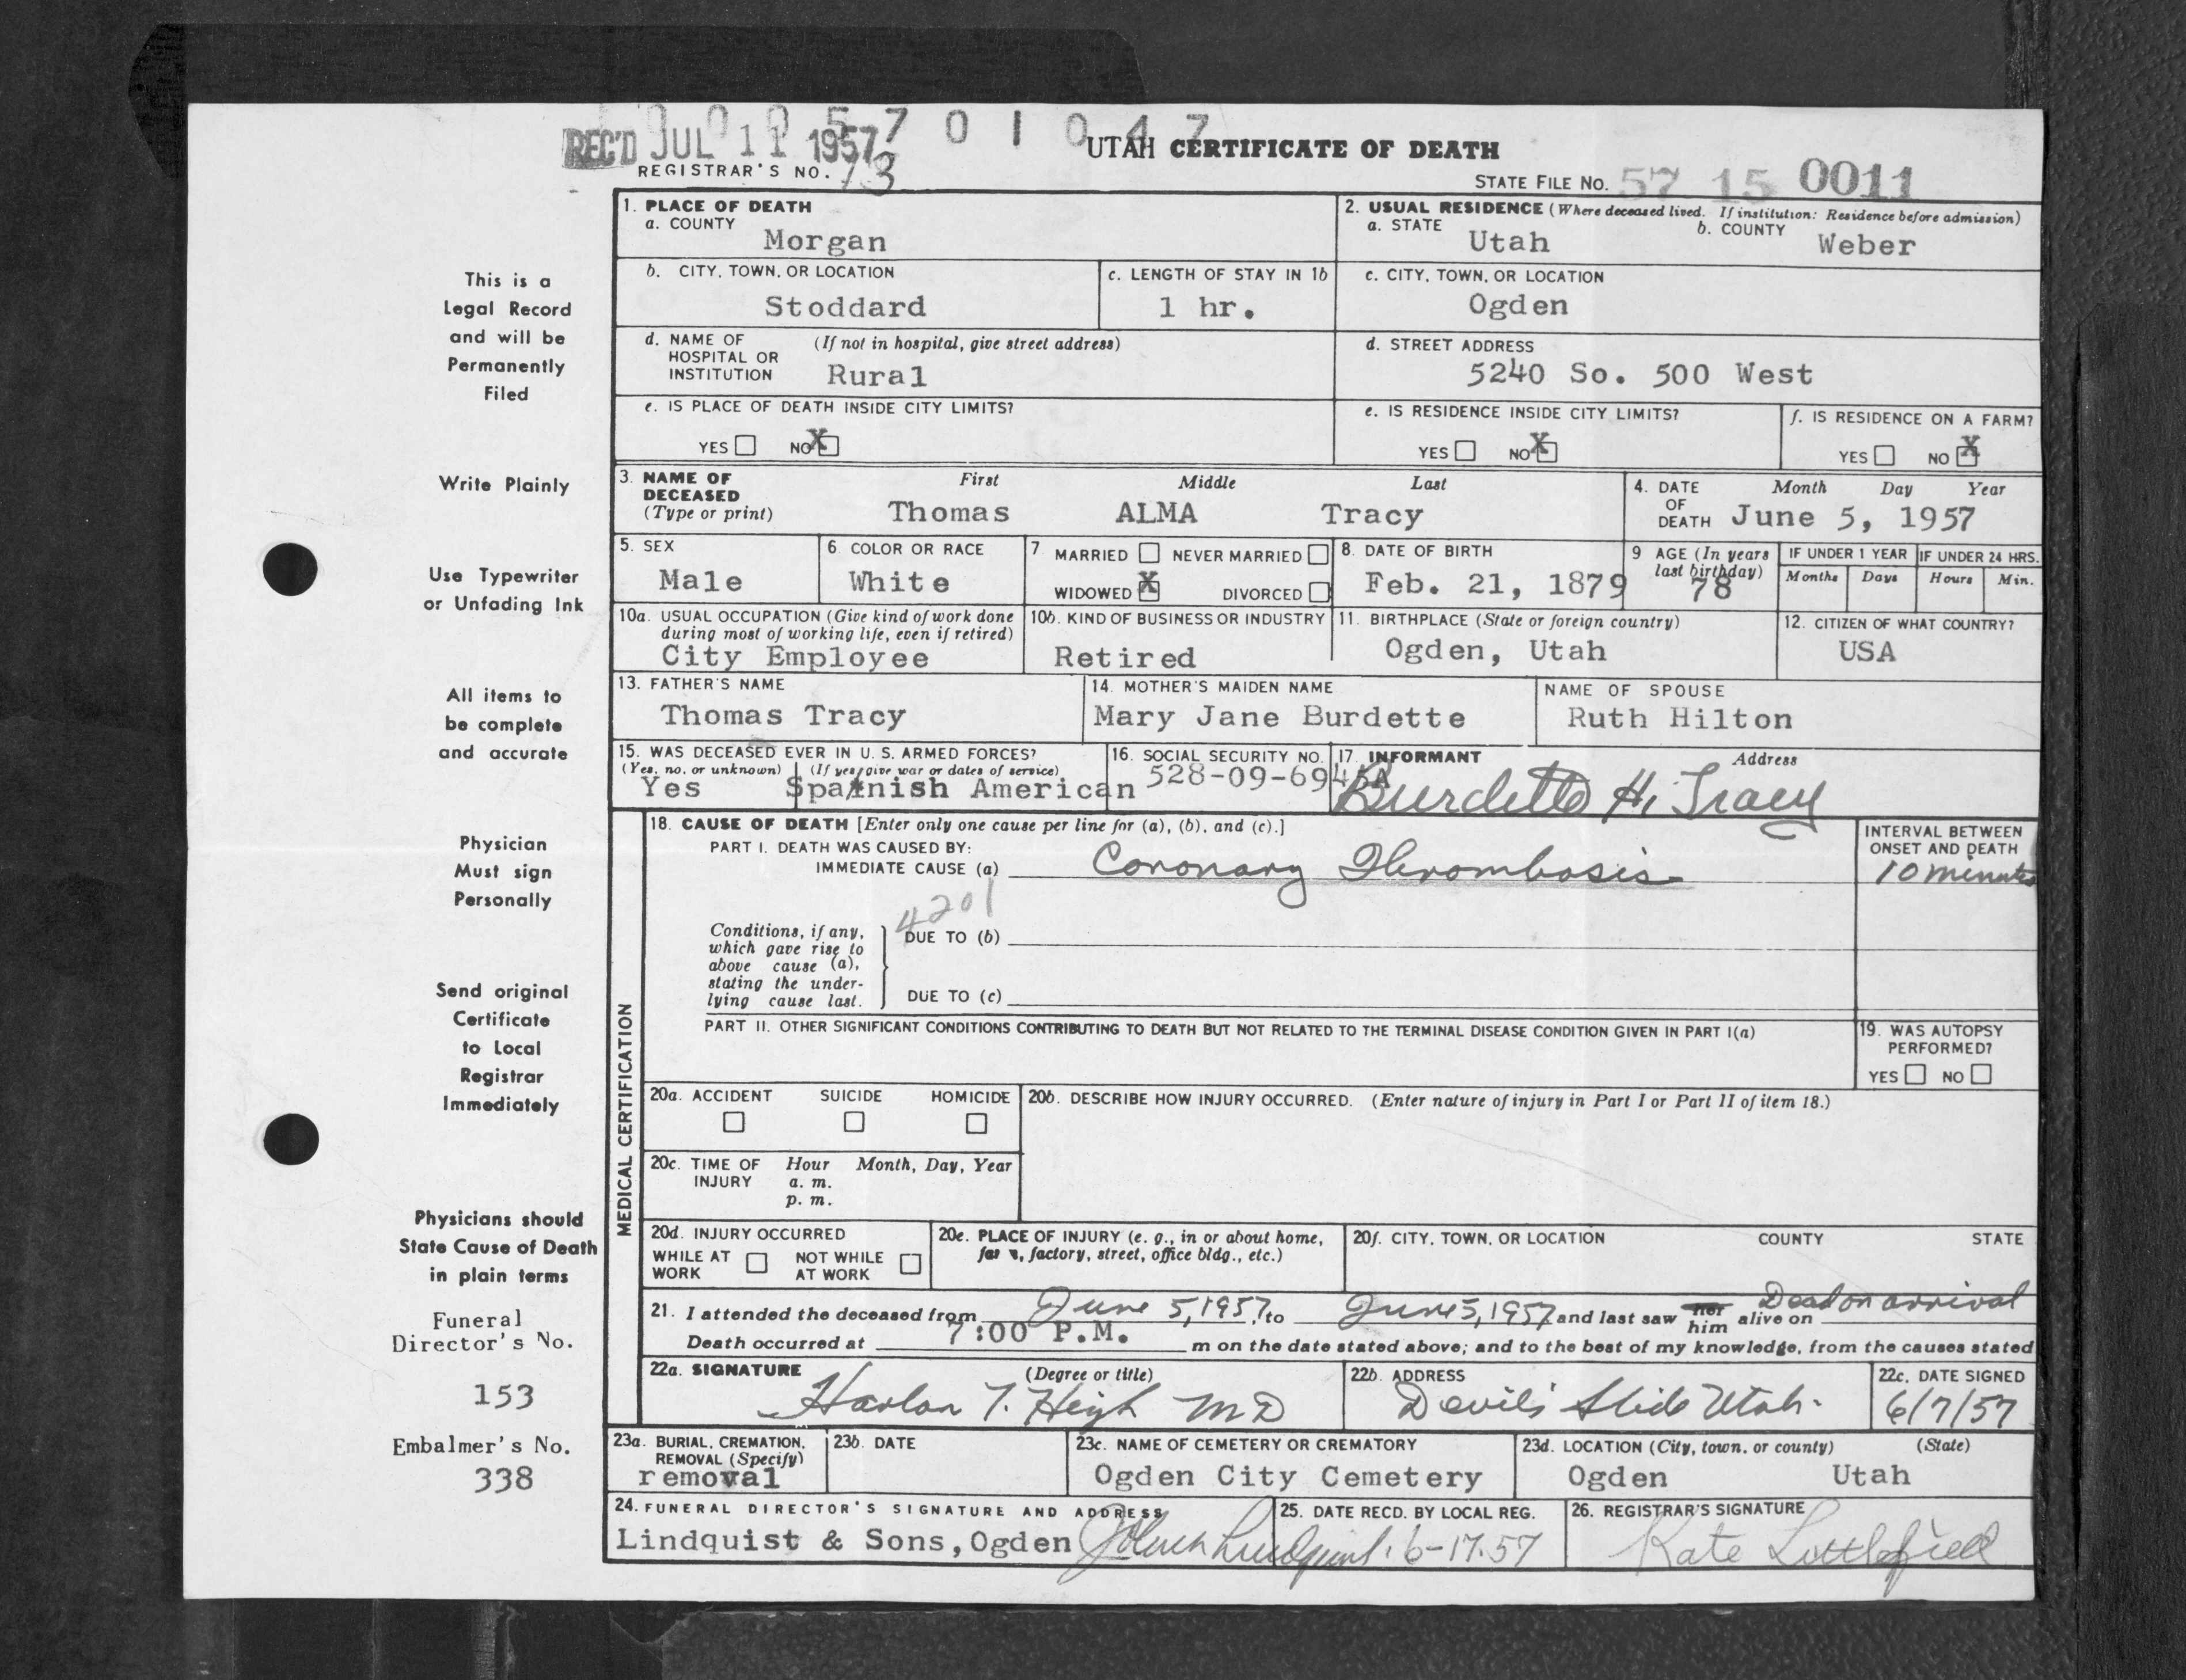 0 0 0 5 7 0 1 0 4 7
REC'D JUL 11 1957
UTAH CERTIFICATE OF DEATH
REGISTRAR'S NO. 13
STATE FILE NO. 57 15 0011
1. PLACE OF DEATH
a. COUNTY
Morgan
2. USUAL RESIDENCE (Where deceased lived. If institution: Residence before admission)
a. STATE Utah b. COUNTY Weber
b. CITY, TOWN, OR LOCATION
Stoddard
c. LENGTH OF STAY IN 1b
1 hr.
c. CITY, TOWN, OR LOCATION
Ogden
d. NAME OF HOSPITAL OR INSTITUTION (If not in hospital, give street address)
Rural
d. STREET ADDRESS
5240 So. 500 West
e. IS PLACE OF DEATH INSIDE CITY LIMITS?
YES NO X
e. IS RESIDENCE INSIDE CITY LIMITS?
YES NO X
f. IS RESIDENCE ON A FARM?
YES NO X
3. NAME OF DECEASED (Type or print)
First Middle Last
Thomas ALMA Tracy
4. DATE OF DEATH Month Day Year
June 5, 1957
5. SEX
Male
6. COLOR OR RACE
White
7 MARRIED NEVER MARRIED
WIDOWED X DIVORCED
8. DATE OF BIRTH
Feb. 21, 1879
9 AGE (In years last birthday)
78
IF UNDER 1 YEAR
Months Days
IF UNDER 24 HRS.
Hours Min.
10a. USUAL OCCUPATION (Give kind of work done during most of working life, even if retired)
City Employee
10b. KIND OF BUSINESS OR INDUSTRY
Retired
11. BIRTHPLACE (State or foreign country)
Ogden, Utah
12. CITIZEN OF WHAT COUNTRY?
USA
13. FATHER'S NAME
Thomas Tracy
14. MOTHER'S MAIDEN NAME
Mary Jane Burdette
NAME OF SPOUSE
Ruth Hilton
15. WAS DECEASED EVER IN U. S. ARMED FORCES?
(Yes, no, or unknown) (If yes, give war or dates of service)
Yes Spanish American
16. SOCIAL SECURITY NO.
528-09-6945A
17. INFORMANT Address
Burdette H. Tracy
MEDICAL CERTIFICATION
18. CAUSE OF DEATH [Enter only one cause per line for (a), (b), and (c).]
PART I. DEATH WAS CAUSED BY:
IMMEDIATE CAUSE (a) Coronary Thrombosis
INTERVAL BETWEEN ONSET AND DEATH
10 minutes
4201
Conditions, if any, which gave rise to above cause (a), stating the underlying cause last.
DUE TO (b)
DUE TO (c)
PART II. OTHER SIGNIFICANT CONDITIONS CONTRIBUTING TO DEATH BUT NOT RELATED TO THE TERMINAL DISEASE CONDITION GIVEN IN PART I(a)
19. WAS AUTOPSY PERFORMED?
YES NO
20a. ACCIDENT SUICIDE HOMICIDE
20b. DESCRIBE HOW INJURY OCCURRED. (Enter nature of injury in Part I or Part II of item 18.)
20c. TIME OF INJURY Hour Month, Day, Year
a. m.
p. m.
20d. INJURY OCCURRED
WHILE AT WORK NOT WHILE AT WORK
20e. PLACE OF INJURY (e. g., in or about home, farm, factory, street, office bldg., etc.)
20f. CITY, TOWN, OR LOCATION COUNTY STATE
21. I attended the deceased from June 5, 1957, to June 5, 1957 and last saw her him alive on Dead on arrival
Death occurred at 7:00 P.M. m on the date stated above; and to the best of my knowledge, from the causes stated
22a. SIGNATURE (Degree or title)
Harlan T. High MD
22b. ADDRESS
Devil's Slide Utah.
22c. DATE SIGNED
6/7/57
23a. BURIAL, CREMATION, REMOVAL (Specify)
removal
23b. DATE
23c. NAME OF CEMETERY OR CREMATORY
Ogden City Cemetery
23d. LOCATION (City, town, or county) (State)
Ogden Utah
24. FUNERAL DIRECTOR'S SIGNATURE AND ADDRESS
Lindquist & Sons, Ogden Lindquist
25. DATE RECD. BY LOCAL REG.
6-17-57
26. REGISTRAR'S SIGNATURE
Kate Littlefield
This is a
Legal Record
and will be
Permanently
Filed
Write Plainly
Use Typewriter
or Unfading Ink
All items to
be complete
and accurate
Physician
Must sign
Personally
Send original
Certificate
to Local
Registrar
Immediately
Physicians should
State Cause of Death
in plain terms
Funeral
Director's No.
153
Embalmer's No.
338